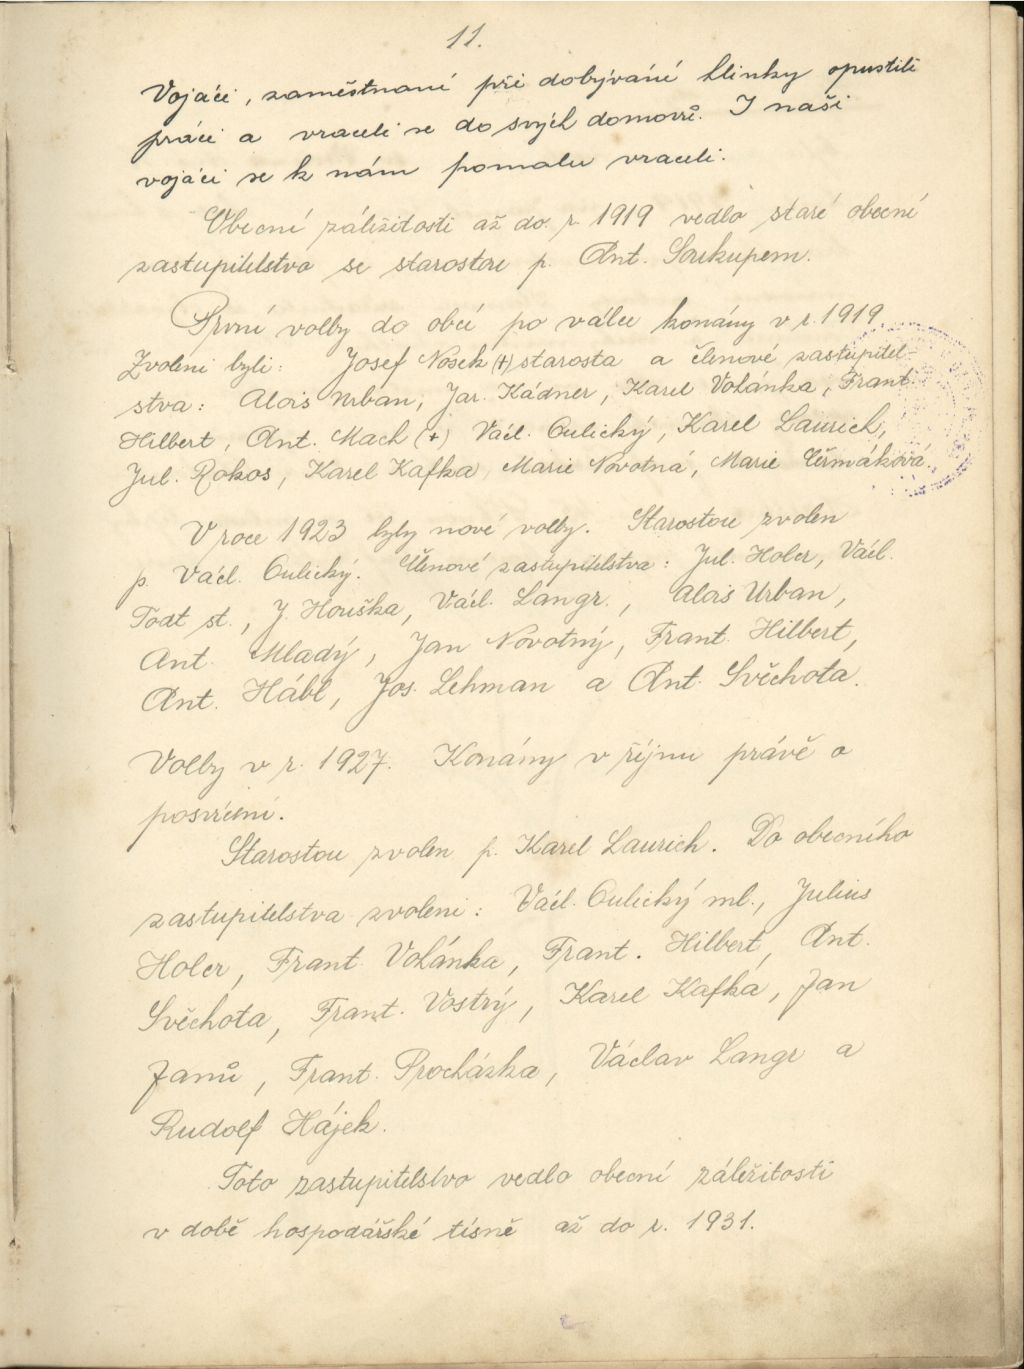 11.
Vojáci, zaměstnaní při dobývání hlinky opustili
práci a vraceli se do svých domovů. I naši
vojáci se k nám pomalu vraceli.
Obecní záležitosti až do r. 1919 vedlo staré obecní
zastupitelstvo se starostou p. Ant. Soukupem.
První volby do obcí po válce konány v r. 1919.
Zvoleni byli: Josef Nosek (+) starosta a členové zastupitel-
stva: Alois Urban, Jar. Kádner, Karel Volánka, Frant.
Hilbert, Ant. Mach (+) Václ. Oulický, Karel Laurich,
Jul. Rokos, Karel Kafka, Marie Novotná, Marie Čermáková.
V roce 1923 byly nové volby. Starostou zvolen
p. Václ. Oulický. Členové zastupitelstva: Jul. Holer, Václ.
Toat st., J. Houška, Václ. Langr., Alois Urban,
Ant. Mladý, Jan Novotný, Frant. Hilbert,
Ant. Hábl, Jos. Lehman a Ant. Svěchota.
Volby v r. 1927. Konány v říjnu právě o
posvícení.
Starostou zvolen p. Karel Laurich. Do obecního
zastupitelstva zvoleni: Václ. Oulický ml., Julius
Holer, Frant. Volánka, Frant. Hilbert, Ant.
Svěchota, Frant. Vostrý, Karel Kafka, Jan
Janů, Frant. Procházka, Václav Langr a
Rudolf Hájek.
Toto zastupitelstvo vedlo obecní záležitosti
v době hospodářské tísně až do r. 1931.